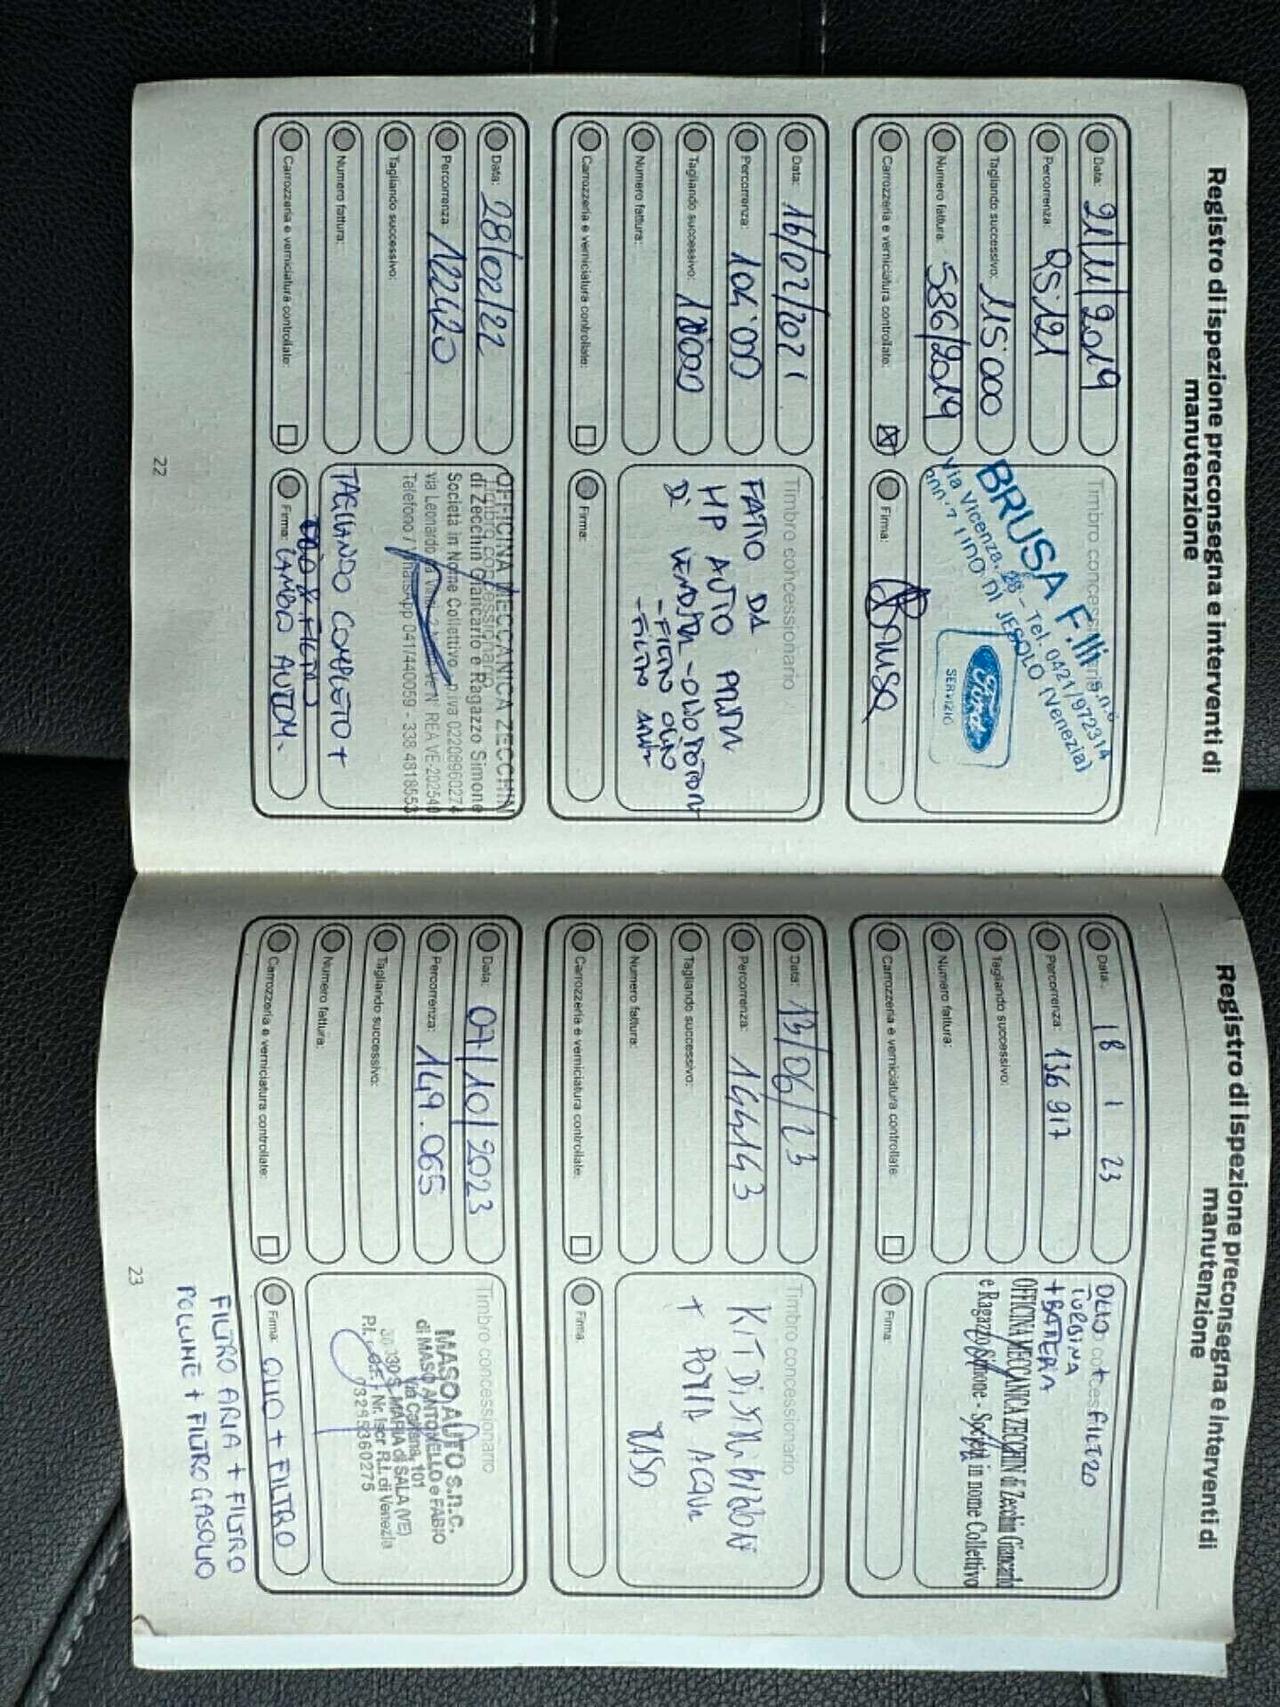 Registro di ispezione preconsegna e interventi di
manutenzione
Data: 21/11/2019
Percorrenza: 95.121
Tagliando successivo: 115.000
Numero fattura: 586/2019
Carrozzeria e verniciatura controllate:
Timbro concessionario
BRUSA F.lli s.n.c.
Via Vicenza, 28 - Tel. 0421/972314
LIDO DI JESOLO (Venezia)
Ford
SERVIZIO
Firma: Brusa
Data: 16/02/2021
Percorrenza: 104'000
Tagliando successivo:
Numero fattura:
Carrozzeria e verniciatura controllate:
Timbro concessionario
FATTO DA
HP AUTO PRIMA
DI VENDITA - OLIO MOTORE
- FILTRO OLIO
- FILTRO ARIA
Firma:
Data: 28/02/22
Percorrenza: 122420
Tagliando successivo:
Numero fattura:
Carrozzeria e verniciatura controllate:
Timbro concessionario
OFFICINA MECCANICA ZECCHIN
di Zecchin Giancarlo e Ragazzo Simone
Società in Nome Collettivo p.iva 02208960274
via Leonardo da Vinci N° REA VE-202540
Telefono / WhatsApp 041/440059 - 338 4818553
TAGLIANDO COMPLETO +
Firma: CAMBIO AUTOM.
22
Registro di ispezione preconsegna e interventi di
manutenzione
Data: 18 1 23
Percorrenza: 136 917
Tagliando successivo:
Numero fattura:
Carrozzeria e verniciatura controllate:
OLIO + FILTRO
TURBINA
+ BATTERIA
OFFICINA MECCANICA ZECCHIN di Zecchin Giancarlo
e Ragazzo Simone - Società in nome Collettivo
Firma:
Data: 13/06/23
Percorrenza: 144143
Tagliando successivo:
Numero fattura:
Carrozzeria e verniciatura controllate:
Timbro concessionario
KIT DISTRIBUZIONE
+ POMPA ACQUA
MASO
Firma:
Data: 07/10/2023
Percorrenza: 149.065
Tagliando successivo:
Numero fattura:
Carrozzeria e verniciatura controllate:
Timbro concessionario
MASO AUTO s.n.c.
di MASO ANTONELLO e FABIO
101
30030 S. MARIA di SALA (VE)
P.I. C.F. Nr. Iscr. R.I. di Venezia
Firma: OLIO + FILTRO
FILTRO ARIA + FILTRO
POLLINE + FILTRO GASOLIO
23